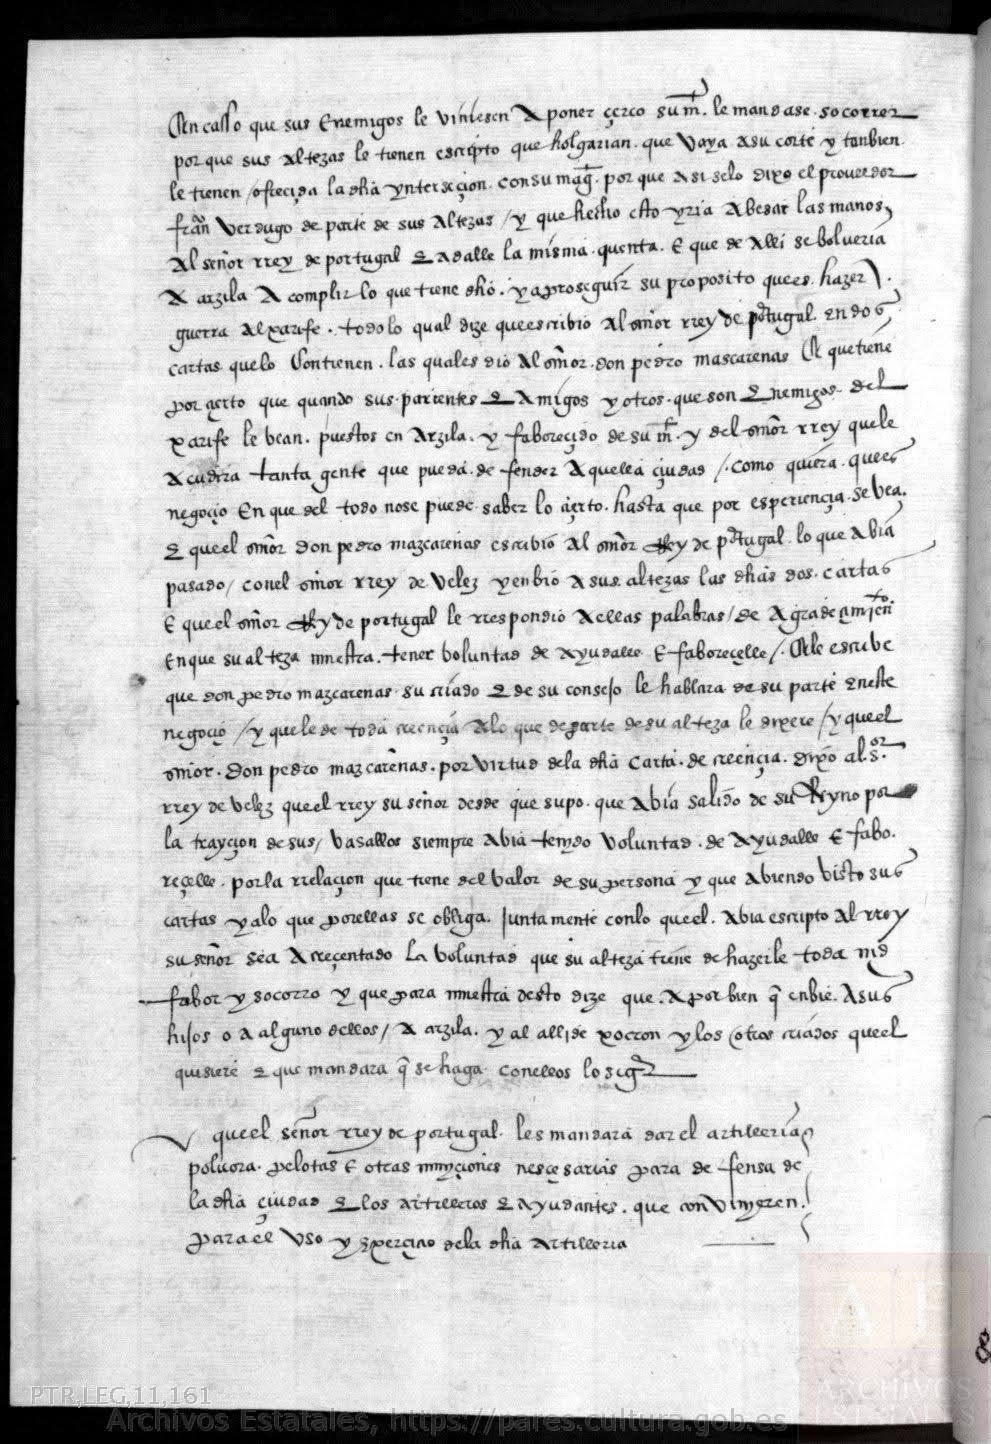 En casso que sus Enemigos le viniesen A poner çerco su m. le mandase socorrer
por que sus altezas le tienen escripto que holgarian que vaya a su corte y tanbien
le tienen ofreçida la dha ynterseçion con su mag. por que asi selo dixo el proueedor
fran Verdugo de parte de sus altezas / y que hecho esto yria A besar las manos
Al señor rrey de portugal E a dalle la misma quenta. E que de alli se bolueria
A arzila A complir lo que tiene dho. y a proseguir su proposito que es hazer
guerra al xarife. todo lo qual dize que escribio al señor rrey de portugal. en dos
cartas que lo contienen. las quales dio Al señor don pedro mascarenas E que tiene
por çierto que quando sus parientes E Amigos y otros que son Enemigos del
xarife le vean puestos en Arzila. y faboreçido de su m. y del señor rrey que le
Acudira tanta gente que pueda defender Aquella çiudad / como quiera que es
negoçio En que del todo no se puede saber lo çierto hasta que por esperiençia se vea.
E que el señor don pedro mazcareñas escribio al señor Rey de portugal lo que abia
pasado / con el señor rrey de Velez y enbio A sus altezas las dhas dos cartas
E que el señor Rey de portugal le rrespondio A ellas palabras / de Agradeçimiento
En que su alteza muestra tener boluntad de Ayudalle E faboreçelle /. E le escribe
que don pedro mazcarenas su criado E de su consejo le hablara de su parte en este
negoçio / y que le de toda creençia A lo que de parte de su alteza le dixere / y que el
señor don pedro mazcareñas por virtud de la dha carta de creençia dixo al s.or
rrey de velez que el rrey su señor desde que supo que abia salido de su Reyno por
la trayçion de sus / vasallos siempre abia tenydo voluntad de Ayudalle E fabo
reçelle por la rrelaçion que tiene del valor de su persona y que abiendo visto sus
cartas y a lo que por ellas se obliga. Juntamente con lo que el abia escripto al rrey
su señor sea Acreçentado la voluntad que su alteza tiene de hazerle toda md
fabor y socorro y que para muestra desto dize que. A por bien q enbie A sus
hijos o a alguno dellos / A arzila y al allide xocron y los otros criados que el
quisiere E que mandara q se haga con ellos lo sig
que el señor rrey de portugal les mandara dar el artilleria
poluora pelotas E otras munyçiones nesçesarias para defensa de
la dha çiudad E los artilleros E Ayudantes que convinyeren
para el Vso y Exerçiçio de la dha Artilleria
8
PTR,LEG,11,161
Archivos Estatales, https://pares.cultura.gob.es
AE
ARCHIVOS
ESTATALES